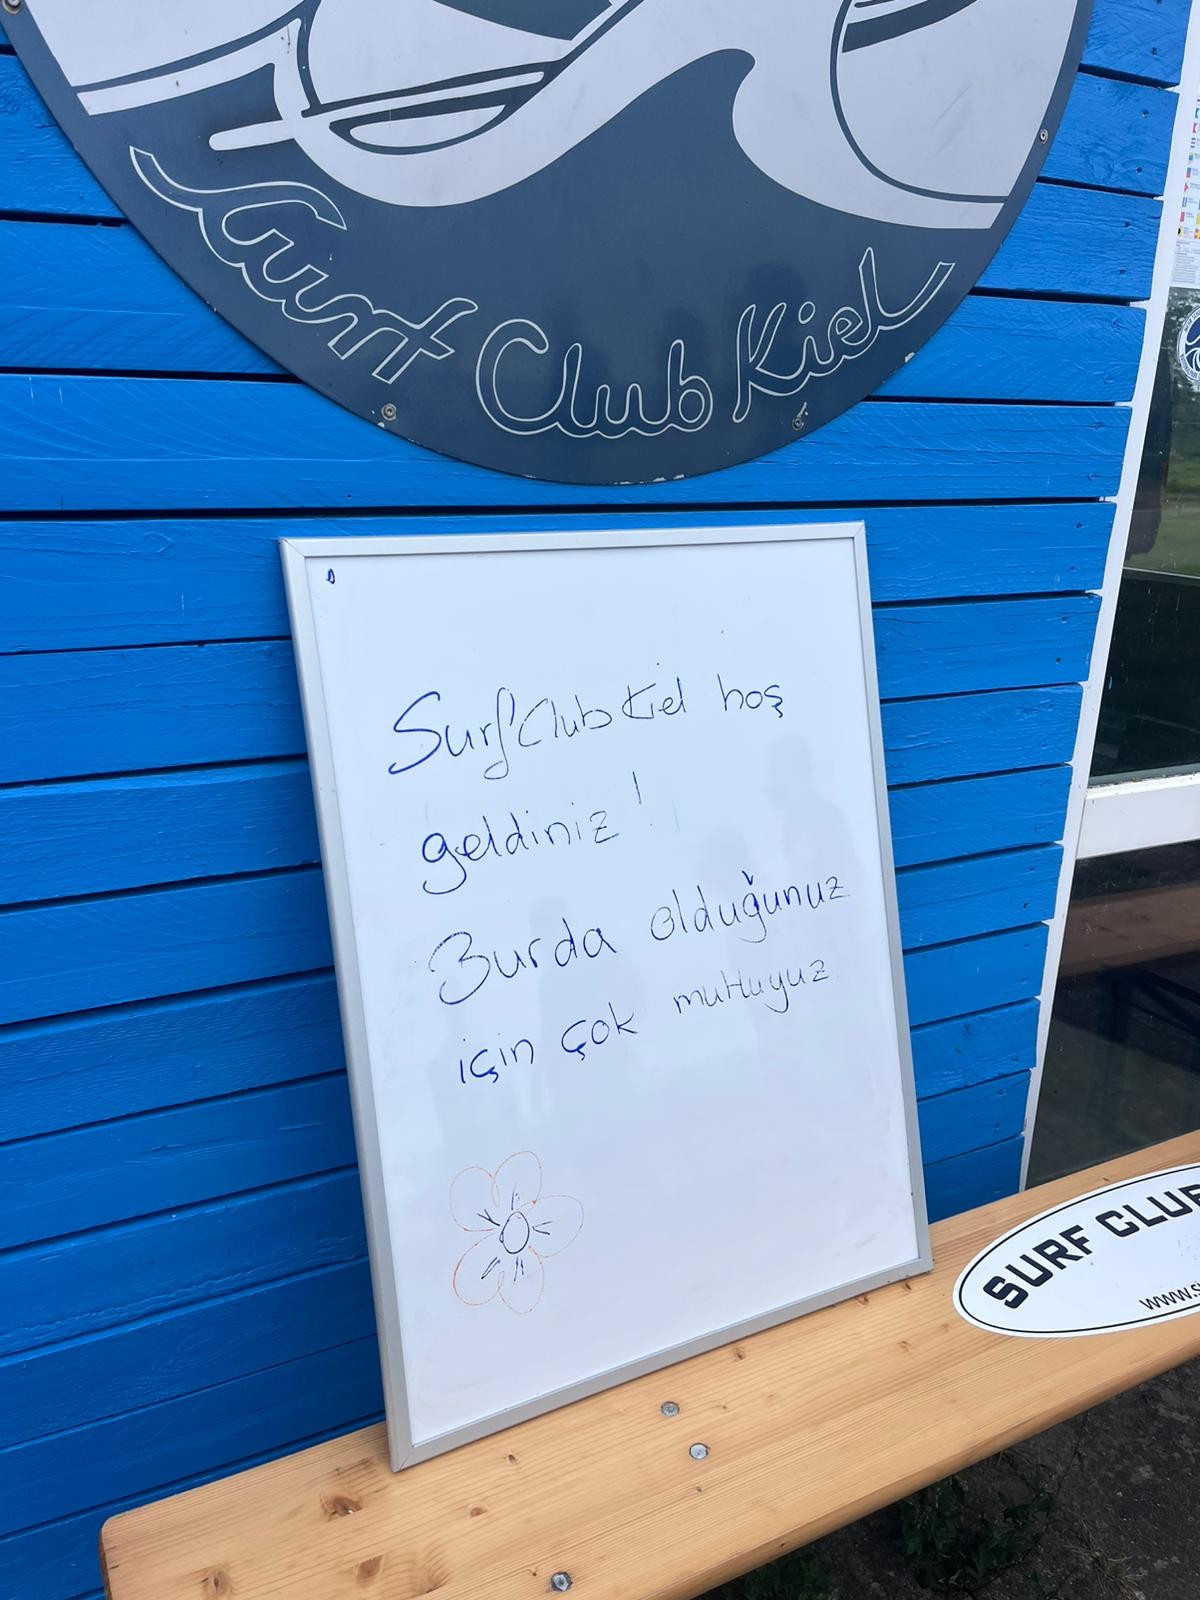 Surf Club Kiel
Surf Club Kiel hoş
geldiniz!
Burda olduğunuz
için çok mutluyuz.
SURF CLUB
www.s